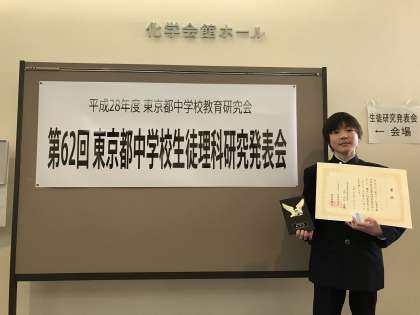 化学会館ホール
平成28年度 東京都中学校教育研究会
第62回 東京都中学校生徒理科研究発表会
生徒研究発表会
← 会場
賞状